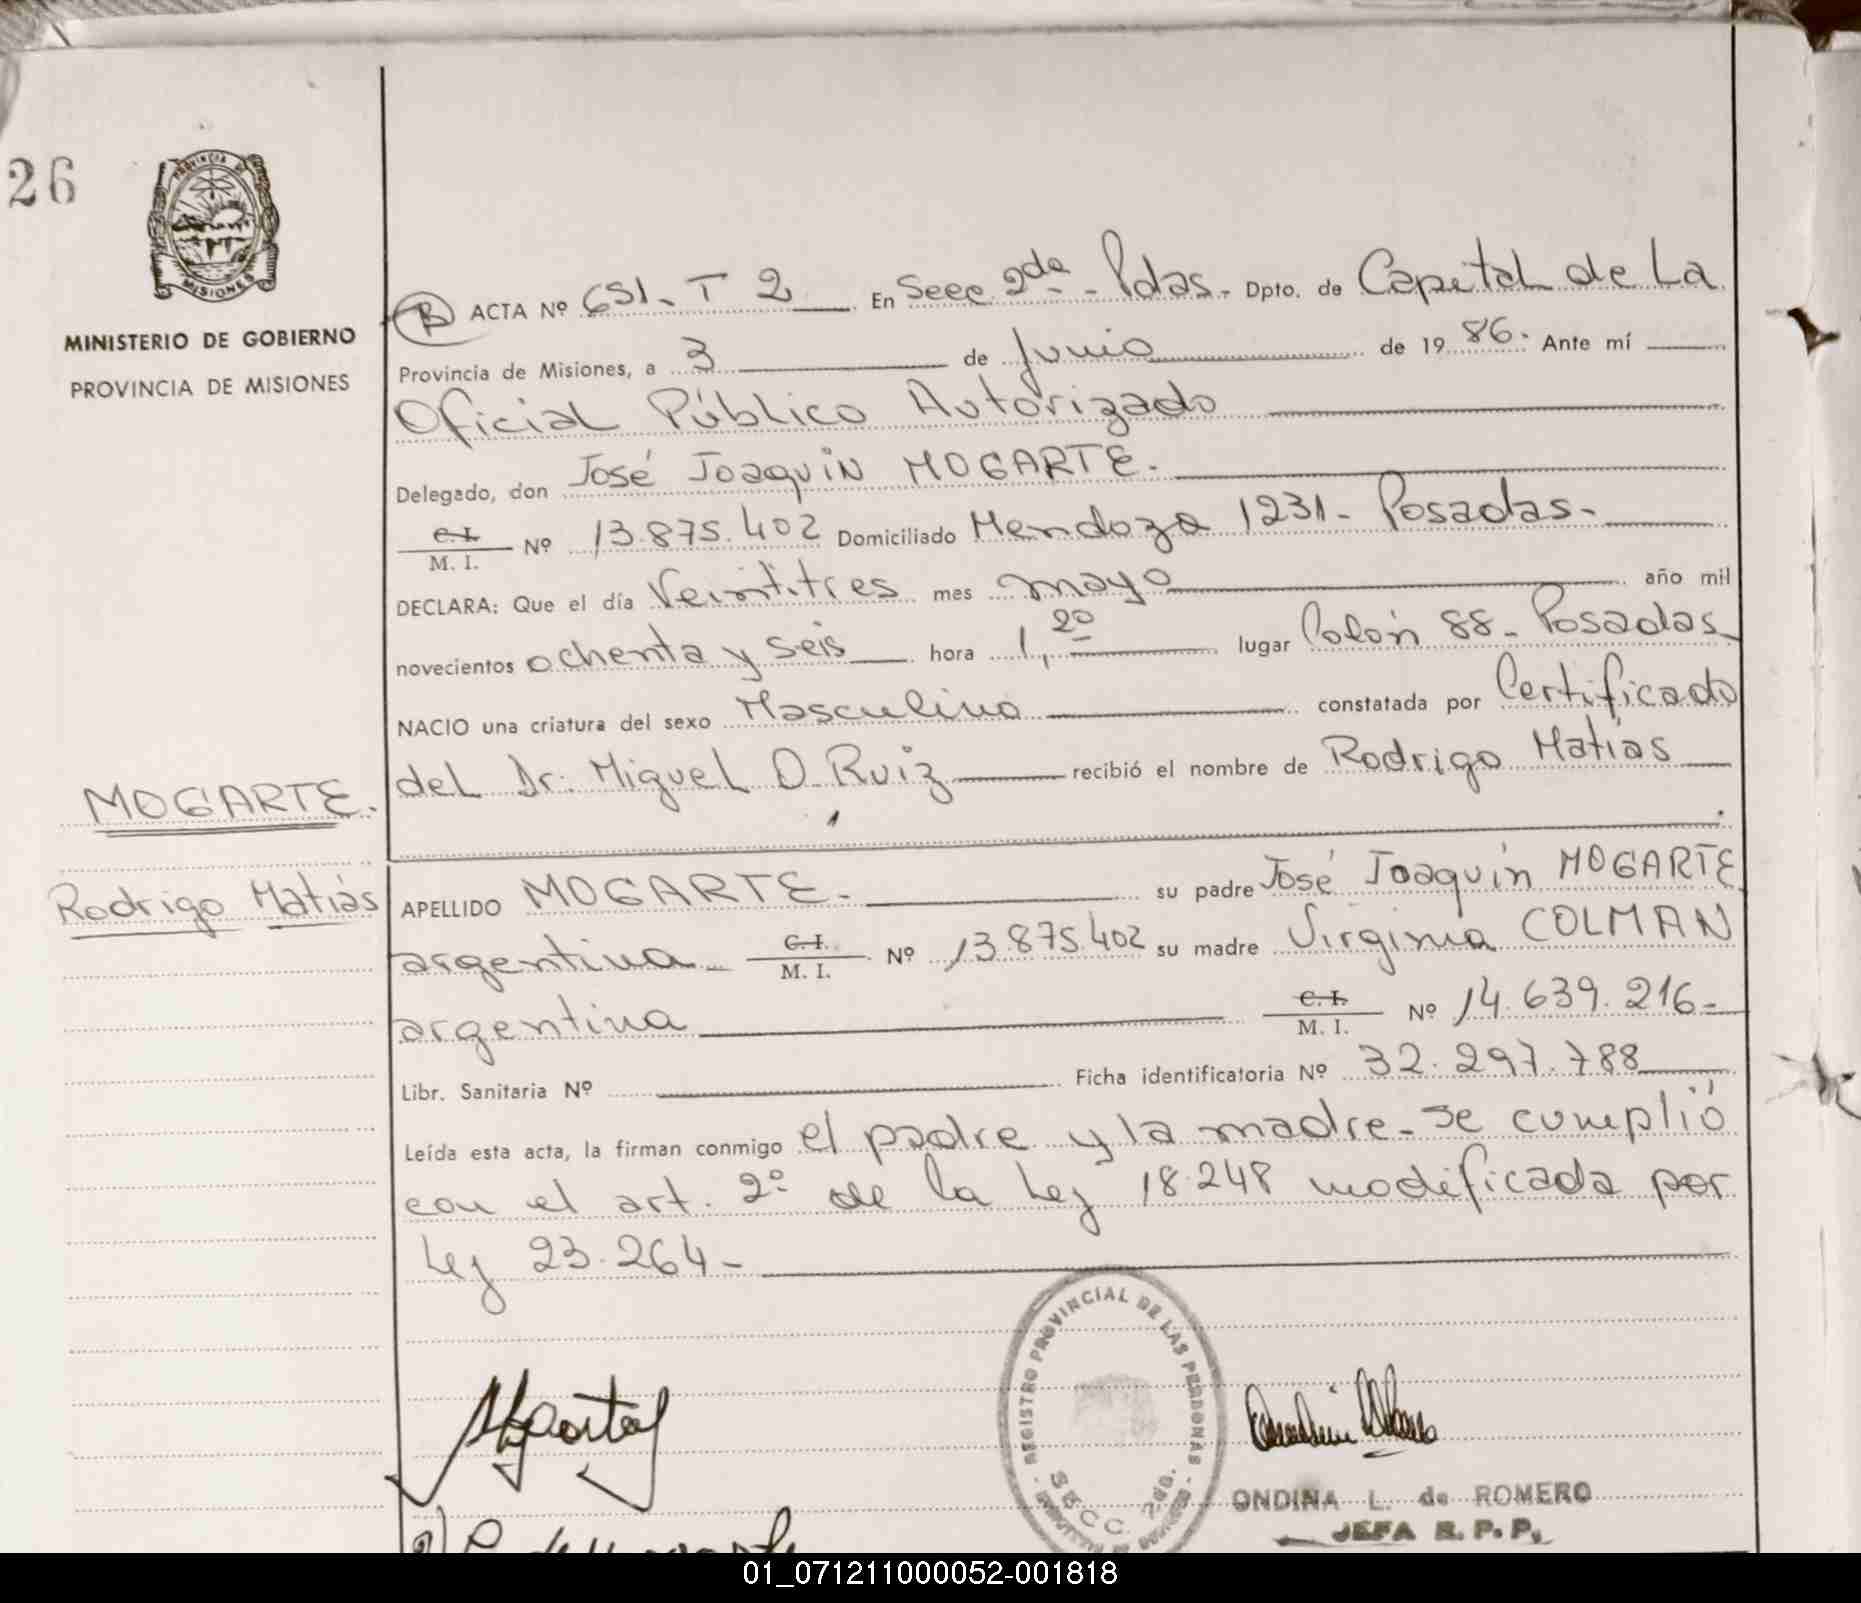 26
PROVINCIA DE
MISIONES
MINISTERIO DE GOBIERNO
PROVINCIA DE MISIONES
B ACTA Nº 651-T 2 En Secc 2da - Pdas. Dpto. de Capital de La
Provincia de Misiones, a 3 de Junio de 19 86. Ante mí
Oficial Público Autorizado
Delegado, don José Joaquin MOGARTE.
C.I. M. I. Nº 13.875.402 Domiciliado Mendoza 1231- Posadas-
DECLARA: Que el día Veintitres mes mayo año mil
novecientos ochenta y seis hora 1,20 lugar Colón 88- Posadas
NACIO una criatura del sexo Masculino constatada por Certificado
del Dr: Miguel O. Ruiz recibió el nombre de Rodrigo Matías
MOGARTE.
Rodrigo Matías
APELLIDO MOGARTE.- su padre José Joaquín MOGARTE
argentina C.I. M. I. Nº 13.875.402 su madre Virginia COLMAN
argentina C.I. M. I. Nº 14.639.216-
Libr. Sanitaria Nº Ficha identificatoria Nº 32.297.788
Leída esta acta, la firman conmigo el padre y la madre- Se cumplió
con el art. 2º de la Ley 18.248 modificada por
Ley 23.264-
REGISTRO PROVINCIAL DE LAS PERSONAS
SECC. 2da.
ONDINA L. de ROMERO
JEFA R. P. P.
01_071211000052-001818